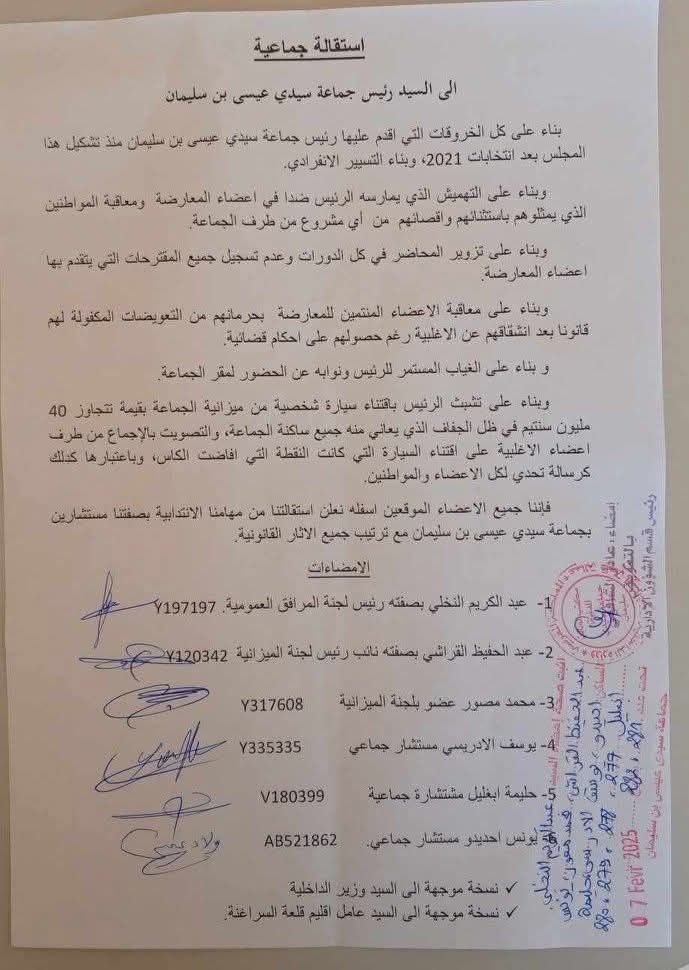 استقالة جماعية
الى السيد رئيس جماعة سيدي عيسى بن سليمان
بناء على كل الخروقات التي اقدم عليها رئيس جماعة سيدي عيسى بن سليمان منذ تشكيل هذا
المجلس بعد انتخابات 2021، وبناء التسيير الانفرادي.
وبناء على التهميش الذي يمارسه الرئيس ضدا في اعضاء المعارضة ومعاقبة المواطنين
الذي يمثلوهم باستثنائهم واقصائهم من أي مشروع من طرف الجماعة.
وبناء على تزوير المحاضر في كل الدورات وعدم تسجيل جميع المقترحات التي يتقدم بها
اعضاء المعارضة.
وبناء على معاقبة الاعضاء المنتمين للمعارضة بحرمانهم من التعويضات المكفولة لهم
قانونا بعد انشقاقهم عن الاغلبية رغم حصولهم على احكام قضائية.
و بناء على الغياب المستمر للرئيس ونوابه عن الحضور لمقر الجماعة.
وبناء على تشبث الرئيس باقتناء سيارة شخصية من ميزانية الجماعة بقيمة تتجاوز 40
مليون سنتيم في ظل الجفاف الذي يعاني منه جميع ساكنة الجماعة، والتصويت بالإجماع من طرف
اعضاء الاغلبية على اقتناء السيارة التي كانت النقطة التي افاضت الكاس، وباعتبارها كدلك
كرسالة تحدي لكل الاعضاء والمواطنين.
فإننا جميع الاعضاء الموقعين اسفله نعلن استقالتنا من مهامنا الانتدابية بصفتنا مستشارين
بجماعة سيدي عيسى بن سليمان مع ترتيب جميع الاثار القانونية.
الامضاءات
1- عبد الكريم النخلي بصفته رئيس لجنة المرافق العمومية. Y197197
2- عبد الحفيظ القراشي بصفته نائب رئيس لجنة الميزانية Y120342
3- محمد مصور عضو بلجنة الميزانية Y317608
4- يوسف الادريسي مستشار جماعي Y335335
5- حليمة ابغليل مشتشارة جماعية V180399
يونس احديدو مستشار جماعي. AB521862
ولاد عيسى
✓ نسخة موجهة الى السيد وزير الداخلية
✓ نسخة موجهة الى السيد عامل اقليم قلعة السراغنة.
رئيس قسم الشؤون الادارية
جماعة سيدي عيسى بن سليمان
0 7 Fevr 2025